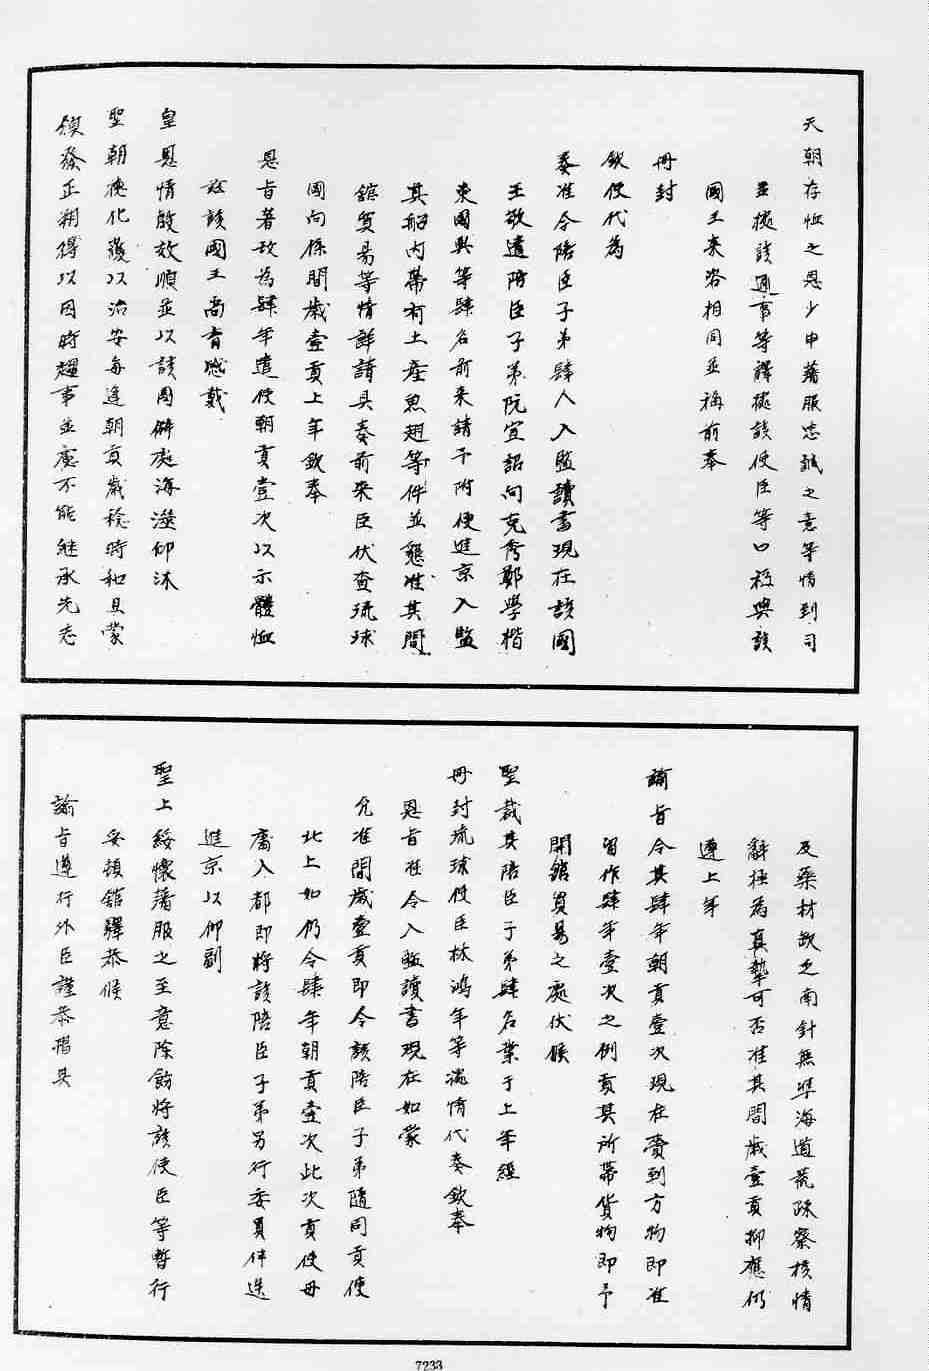 天朝存恤之恩少申藩服忠誠之意等情到司
並據該通事等譯據該使臣等口禀與該
國王來咨相同並稱前奉
冊封
欽使代為
奏准令陪臣子弟肆人入監讀書現在該國
王敬遣陪臣子弟阮宣詔向克秀鄭學楷
東國興等肆名前來請予附便進京入監
其船内帶有土產魚翅等件並懇准其開
館貿易等情詳請具奏前來臣伏查琉球
國向係間歲壹貢上年欽奉
恩旨著改為肆年遣使朝貢壹次以示體恤
玆該國王尚育感戴
皇恩情殷效順並以該國僻處海澨仰沐
聖朝德化覆以治安每逢朝貢歲稔時和且蒙
頒發正朔得以因時趨事並慮不能繼承先志
及藥材缺乏南針無準海道荒疎察核情
辭極為真摯可否准其間歲壹貢抑應仍
遵上年
諭旨令其肆年朝貢壹次現在賫到方物即准
留作肆年壹次之例貢其所帶貨物即予
開館貿易之處伏候
聖裁其陪臣子弟肆名業于上年經
冊封琉球使臣林鴻年等瀝情代奏欽奉
恩旨准令入監讀書現在如蒙
允准間歲壹貢即令該陪臣子弟隨同貢使
北上如仍令肆年朝貢壹次此次貢使毋
庸入都即將該陪臣子弟另行委員伴送
進京以仰副
聖上綏懷藩服之至意除飭將該使臣等暫行
妥頓館驛恭候
諭旨遵行外臣謹恭摺具
7233